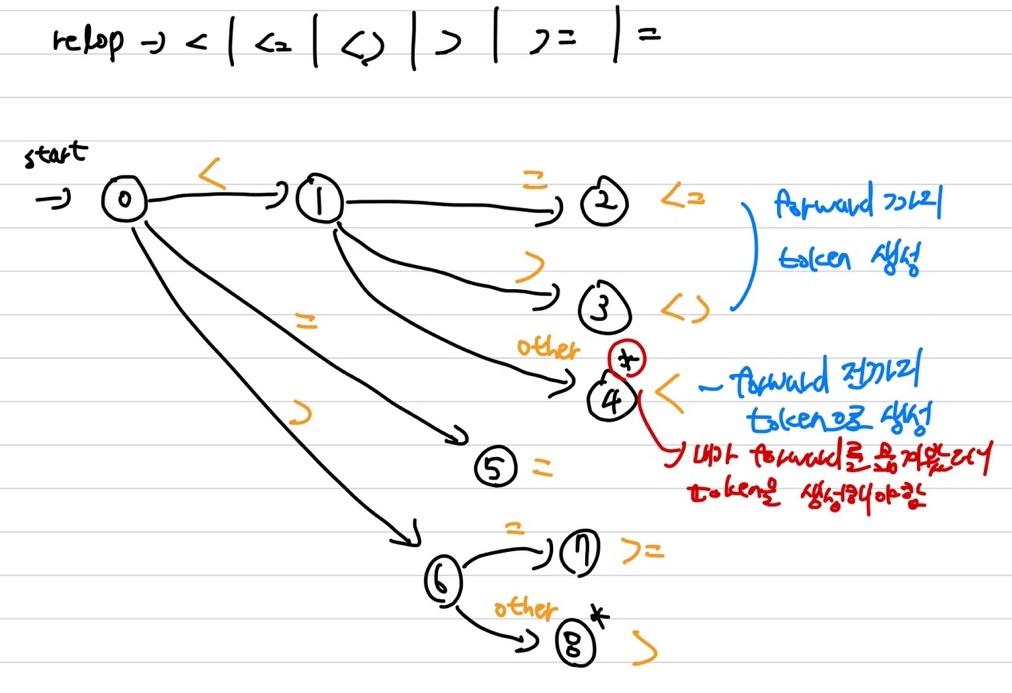 relop → < | <= | <> | > | >= | =
start
→ 0 < 1 = 2 <= forward 까지
token 생성
> 3 <>
other *
4 < ~ forward 전까지
token으로 생성
→ 내가 forward를 옮겨왔
token을 생성해야함
=
5 =
>
6 = 7 >=
other 8 * >